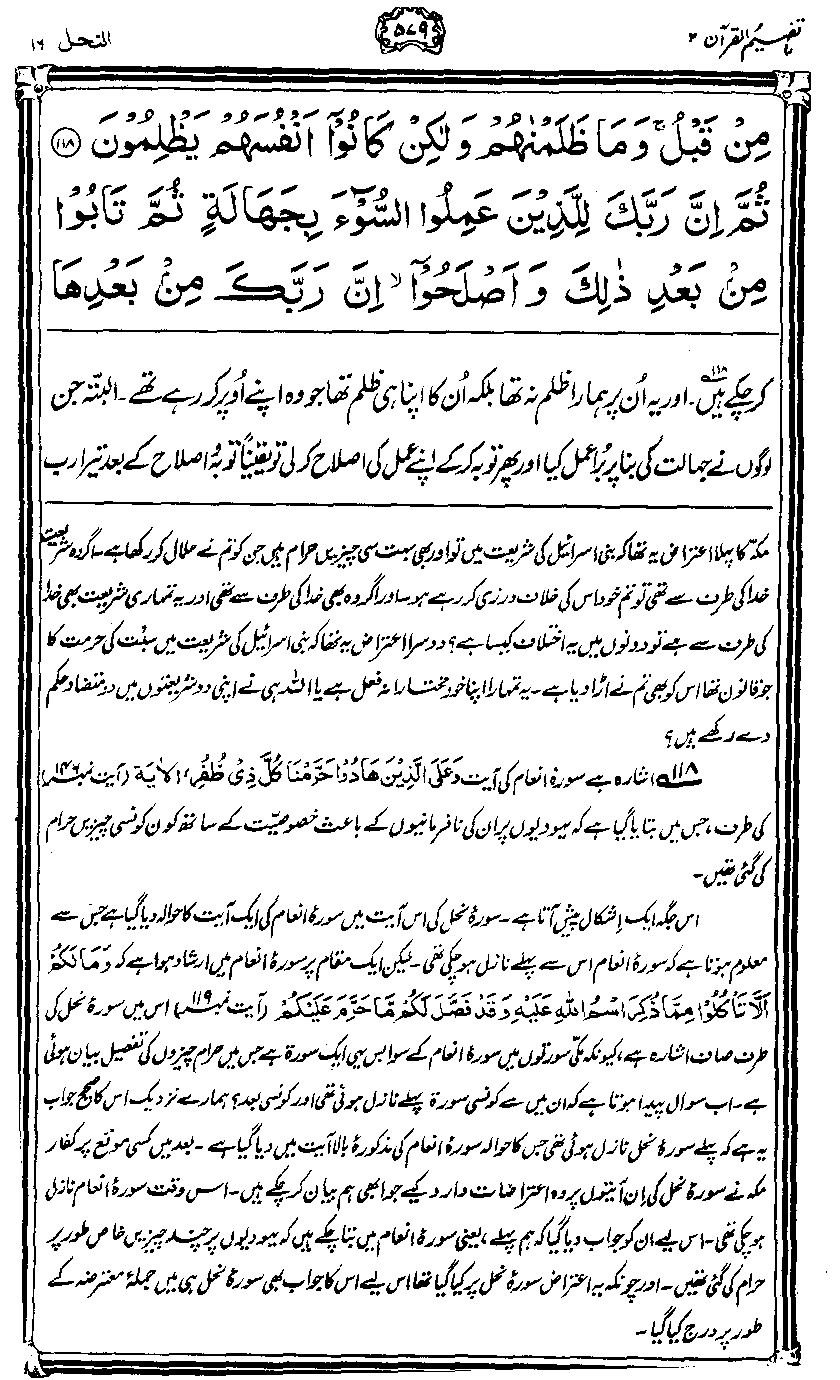 تفہیم القرآن ۲
۵۷۹
النحل ۱۶
مِنْ قَبْلُ ۚ وَمَا ظَلَمْنٰهُمْ وَلٰكِنْ كَانُوْٓا اَنْفُسَهُمْ يَظْلِمُوْنَ ﴿۱۱۸﴾
ثُمَّ اِنَّ رَبَّكَ لِلَّذِيْنَ عَمِلُوا السُّوْٓءَ بِجَهَالَةٍ ثُمَّ تَابُوْا
مِنْۢ بَعْدِ ذٰلِكَ وَاَصْلَحُوْٓا ۙ اِنَّ رَبَّكَ مِنْۢ بَعْدِهَا
کر چکے ہیں۱۱۸۔ اور یہ اُن پر ہمارا ظلم نہ تھا بلکہ اُن کا اپنا ہی ظلم تھا جو وہ اپنے اُوپر کر رہے تھے۔ البتّہ جن
لوگوں نے جہالت کی بنا پر بُرا عمل کیا اور پھر توبہ کر کے اپنے عمل کی اصلاح کر لی تو یقیناً توبہ و اصلاح کے بعد تیرا رب
مکّہ کا پہلا اعتراض یہ تھا کہ بنی اسرائیل کی شریعت میں تو اور بھی بہت سی چیزیں حرام ہیں جن کو تم نے حلال کر رکھا ہے۔ اگر وہ شریعت
خدا کی طرف سے تھی تو تم خود اس کی خلاف ورزی کر رہے ہو۔ اور اگر وہ بھی خدا کی طرف سے تھی اور یہ تمہاری شریعت بھی خدا
کی طرف سے ہے تو دونوں میں یہ اختلاف کیسا ہے؟ دوسرا اعتراض یہ تھا کہ بنی اسرائیل کی شریعت میں سبْت کی حرمت کا
جو قانون تھا اس کو بھی تم نے اڑا دیا ہے۔ یہ تمہارا اپنا خود مختارانہ فعل ہے یا اللہ ہی نے اپنی دو شریعتوں میں دو متضاد حکم
دے رکھے ہیں؟
۱۱۸ اشارہ ہے سورۂ انعام کی آیت وَعَلَى الَّذِيْنَ هَادُوْا حَرَّمْنَا كُلَّ ذِيْ ظُفُرٍ، الاٰیۃ (آیت نمبر ۱۴۶)
کی طرف، جس میں بتایا گیا ہے کہ یہودیوں پر ان کی نافرمانیوں کے باعث خصوصیّت کے ساتھ کون کونسی چیزیں حرام
کی گئی تھیں۔
اس جگہ ایک اِشکال پیش آتا ہے۔ سورۂ نحل کی اس آیت میں سورۂ انعام کی ایک آیت کا حوالہ دیا گیا ہے جس سے
معلوم ہوتا ہے کہ سورۂ انعام اس سے پہلے نازل ہو چکی تھی۔ لیکن ایک مقام پر سورۂ انعام میں ارشاد ہوا ہے کہ وَمَا لَكُمْ
اَلَّا تَاْكُلُوْا مِمَّا ذُكِرَ اسْمُ اللهِ عَلَيْهِ وَقَدْ فَصَّلَ لَكُمْ مَّا حَرَّمَ عَلَيْكُمْ (آیت نمبر ۱۱۹) اس میں سورۂ نحل کی
طرف صاف اشارہ ہے، کیونکہ مکّی سورتوں میں سورۂ انعام کے سوا بس یہی ایک سورۃ ہے جس میں حرام چیزوں کی تفصیل بیان ہوئی
ہے۔ اب سوال پیدا ہوتا ہے کہ ان میں سے کونسی سورۃ پہلے نازل ہوئی تھی اور کونسی بعد؟ ہمارے نزدیک اس کا صحیح جواب
یہ ہے کہ پہلے سورۂ نحل نازل ہوئی تھی جس کا حوالہ سورۂ انعام کی مذکورۂ بالا آیت میں دیا گیا ہے۔ بعد میں کسی موقع پر کفار
مکہ نے سورۂ نحل کی اِن آیتوں پر وہ اعتراضات وارد کیے جو ابھی ہم بیان کر چکے ہیں۔ اس وقت سورۂ انعام نازل
ہو چکی تھی۔ اس لیے ان کو جواب دیا گیا کہ ہم پہلے، یعنی سورۂ انعام میں بتا چکے ہیں کہ یہودیوں پر چند چیزیں خاص طور پر
حرام کی گئی تھیں۔ اور چونکہ یہ اعتراض سورۂ نحل پر کیا گیا تھا اس لیے اس کا جواب بھی سورۂ نحل ہی میں جملۂ معترضہ کے
طور پر درج کیا گیا۔